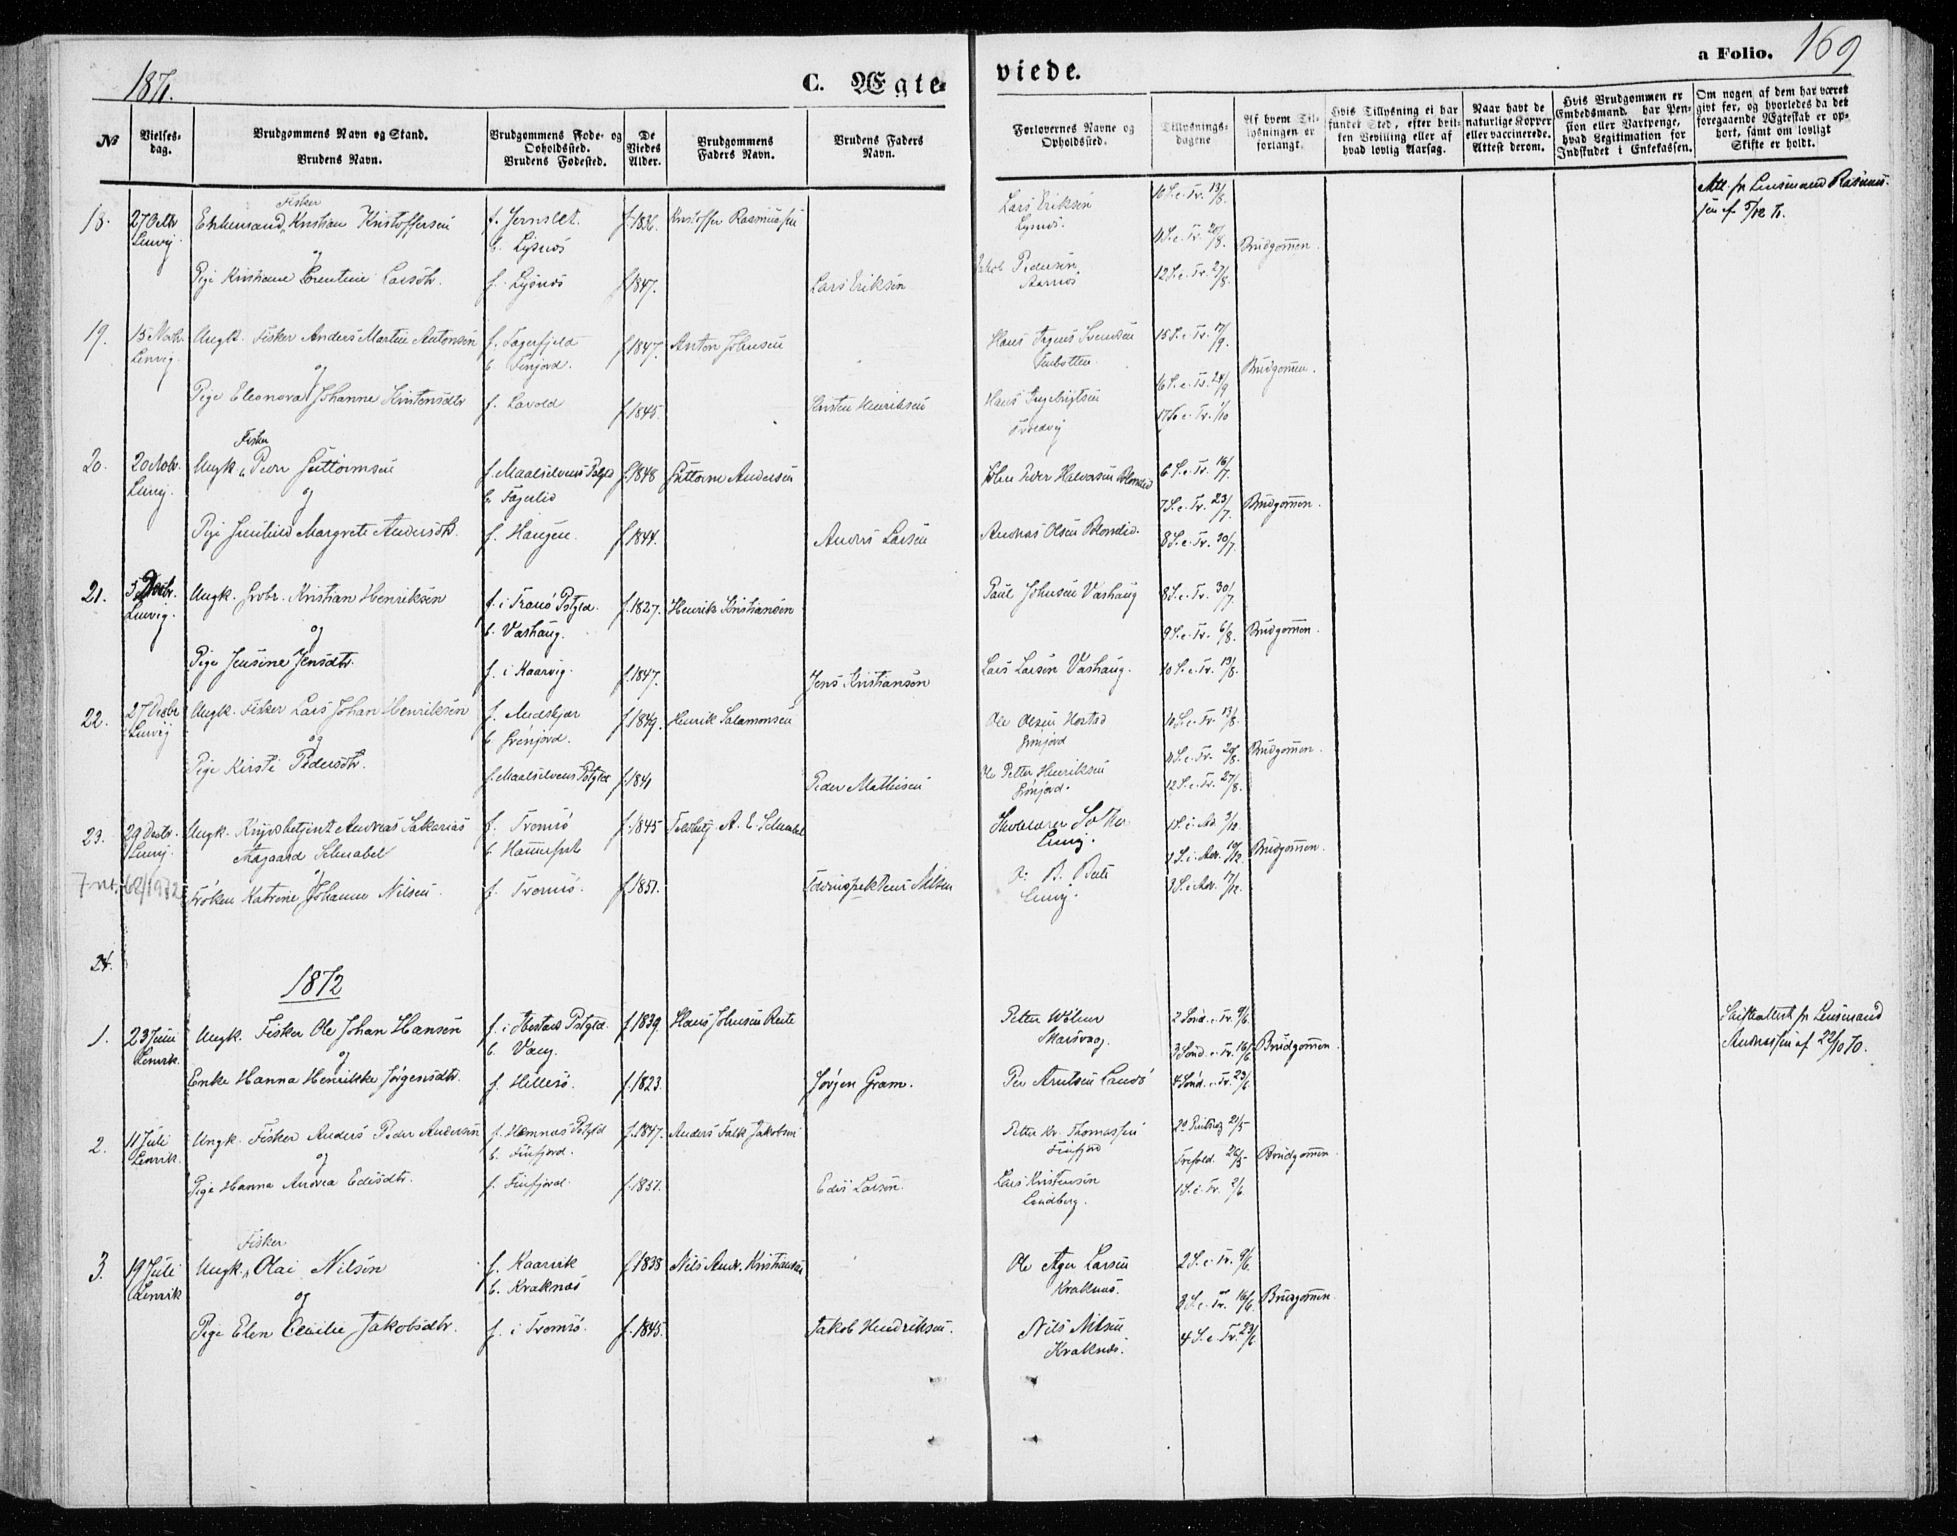 1871.
C. Ægte-
viede.
a Folio. 169
No
Vielses-
dag.
Brudgommens Navn og Stand.
Brudens Navn.
Brudgommens Føde- og
Opholdssted.
Brudens Fødested.
De
Viedes
Alder.
Brudgommens
Faders Navn.
Brudens Faders
Navn.
Forlovernes Navne og
Opholdssted.
Tillysnings-
dagene
Af hvem Til-
lysningen er
forlangt.
Hvis Tillysning ei har
fundet Sted, efter hvil-
ken Bevilling eller af
hvad lovlig Aarsag.
Naar havt de
naturlige Kopper
eller vaccinerede.
Attest derom.
Hvis Brudgommen er
Embedsmand, har Pen-
sion eller Vartpenge,
hvad Legitimation for
Indskudet i Enkekassen.
Om nogen af dem har været
givt før, og hvorledes da det
foregaaende Ægteskab er op-
hørt, samt om lovligt
Skifte er holdt.
18. 27 Octbr Enkemand, Fisker Kristian Kristoffersen f. Jernslet. f. 1836. Kristoffer Rasmussen Lars Eriksen 10 S. e. Tr. 13/8. Att. fr Lensmand Rasmus-
Lenvig. b. Lysnes Lysnes. 11 S. e. Tr. 20/8. Brudgommen. sen af 5/12 71.
og
Pige Kristiane Larsdtr. f. Lysnes f. 1847. Lars Eriksen Jakob Pedersen 12 S. e. Tr. 27/8.
19. 15 Novbr. Ungk. Fisker Anders Martin Antonsen f. Fagerfjeld f. 1847. Anton Johnsen Hans 15 S. e. Tr. 17/9.
Lenvig. b. Finfjord.
og 16 S. e. Tr. 24/9 Brudgommen.
Pige Eleonora Johanne Kristensdtr f. Lavold f. 1845. Kristen Henriksen Hans Ingebrigtsen 17 S. e. Tr. 1/10
20. 20 Novbr. Ungk., Fisker Peder Guttormsen f. Maalselvens Pstgld f. 1848 Guttorm Andersen Peder Halvorsen 6 S. e. Tr. 16/7.
Lenvig. og b. Fagerlid 7 S. e. Tr. 23/7. Brudgommen.
Pige Margrete Andersdtr. f. Haugen f. 1844. Anders Larsen Andreas Olsen 8 S. e. Tr. 30/7.
21. Lenvig. Ungk. Grbr. Kristian Henriksen f. i Tranø Pstgld. f. 1827. Henrik Kristiansen Paul Johnsen Vashaug 8 S. e. Tr. 30/7.
og b. Vashaug. 9 S. e. Tr. 6/8. Brudgommen.
Pige Jensine Jensdtr. f. i Kaarvig. f. 1847. Jens Kristiansen Lars Larsen Vashaug. 10 S. e. Tr. 13/8.
22. 27 Decbr Ungk. Fisker Lars Johan Henriksen f. f. 1849. Henrik Salamonsen Ole Olsen 10 S. e. Tr. 13/8.
Lenvig og b. Grønjord. Grønjord 11 S. e. Tr. 20/8. Brudgommen.
Pige Kirsti Pedersdtr. f. Maalselvens Pstgld f. 1841 Peder Mathisen Ole Petter Henriksen 12 S. e. Tr. 27/8.
Grønjord.
23. 29 Decbr. Ungk. Andreas Sakarias f. Tromsø f. 1845 A. E. Schnabel 1 S. i Ad. 3/12.
Lenvig. Aagaard Schnabel b. Hammerfest Lenvig. 2 S. i Adv. 10/12. Brudgommen.
62/1972
Frøken Katrine Johanne Nilsen f. Tromsø. f. 1851. Nilsen Lenvig. 3 S. i Adv. 17/12.
24.
1872
1. 23 Juni Ungk. Fisker Ole Johan Hansen f. i Ibestad Pstgld. f. 1839 Hans Johnsen Petter 2 Sønd. e. Tr. 9/6. Skifteattest fr Lensmand
Lenvik. og b. Vang. 3 Sønd. e. Tr. 16/6. Brudgommen. Andreassen af 22/10 70.
Enke Hanna Henrikke Jørgensdtr. f. Hillesø. f. 1823. Jørgen Gram. Per Arntsen 4 Sønd. e. Tr. 23/6.
2. 11 Juli Ungk. Fisker Anders Peder Andersen f. Hemnes Pstgld f. 1847. Anders Falk Jakobsen Petter Kr. Thomassen 2 Pintsdag 21/5
Lenvik. og b. Finfjord. Finfjord Trefold. 26/5 Brudgommen.
Pige Hanna Andrea Edisdtr. f. Finfjord. f. 1851. Edis Larsen. Lars Kristensen 1 S. e. Tr. 2/6.
Lindberg.
3. 19 Juli Ungk., Fisker Olai Nilsen f. Kaarvik f. 1838 Nils Andr. Kristiansen Ole Ager Larsen 2 S. e. Tr. 9/6.
Lenvik og b. Kraknæs Kraknes. 3 S. e. Tr. 16/6. Brudgommen.
Pige Elen Cecilie Jakobsdtr. f. i Tromsø. f. 1845. Jakob Hendriksen. Nils Nilsen 4 S. e. Tr. 23/6
Kraknes.